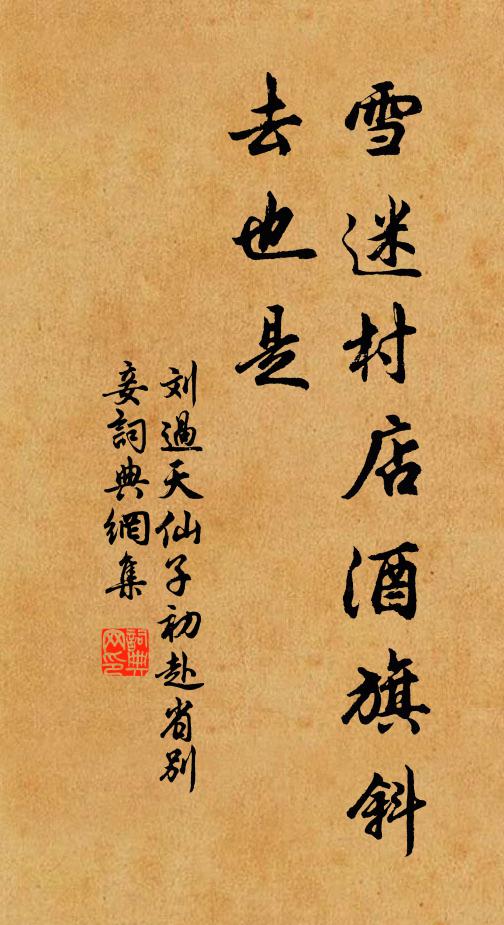 雪迷村店酒旗斜
去也是
刘過天仙子初赴省别
妾詞典網集
詞典
网印